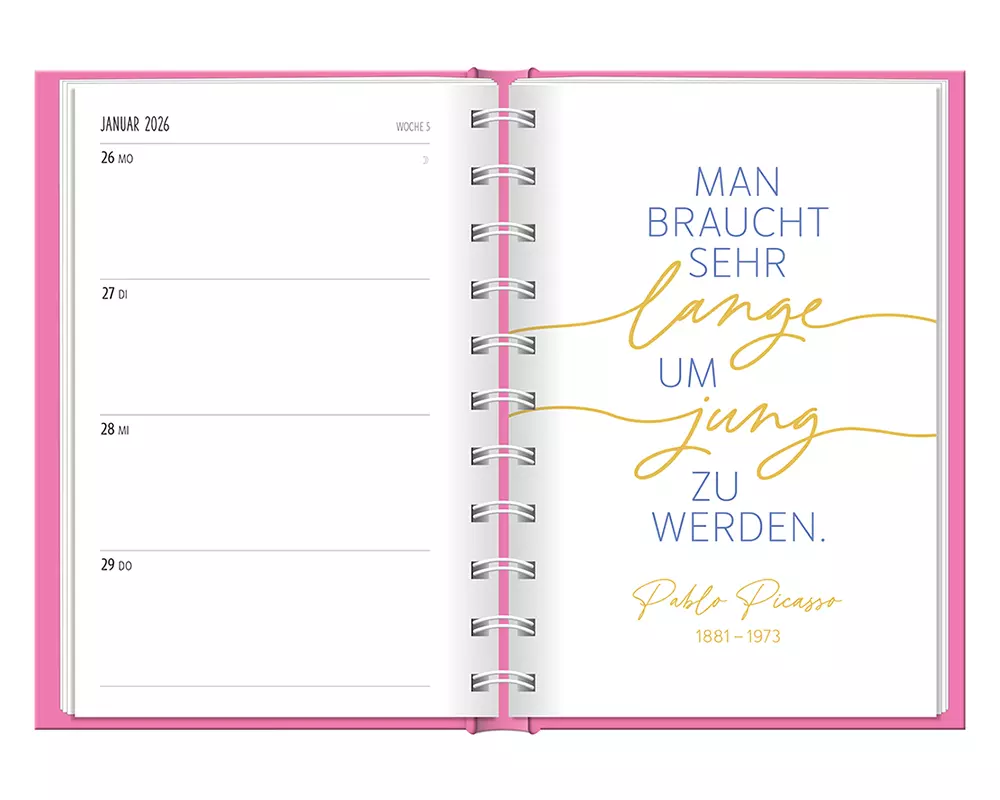 JANUAR 2026
WOCHE 5
26 MO
27 DI
28 MI
29 DO
MAN
BRAUCHT
SEHR
lange
UM
jung
ZU
WERDEN.
Pablo Picasso
1881 – 1973